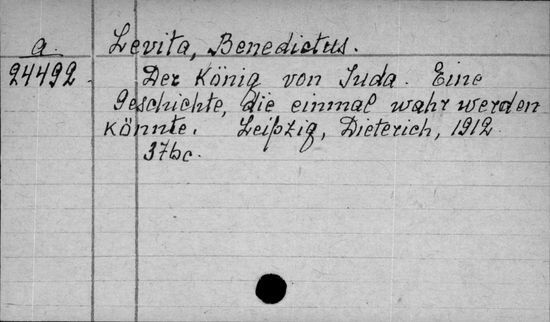 a. Levita, Benedictus.
24492. Der König von Juda. Eine
Geschichte, die einmal wahr werden
könnte. Leipzig, Dieterich, 1912.
37bc.